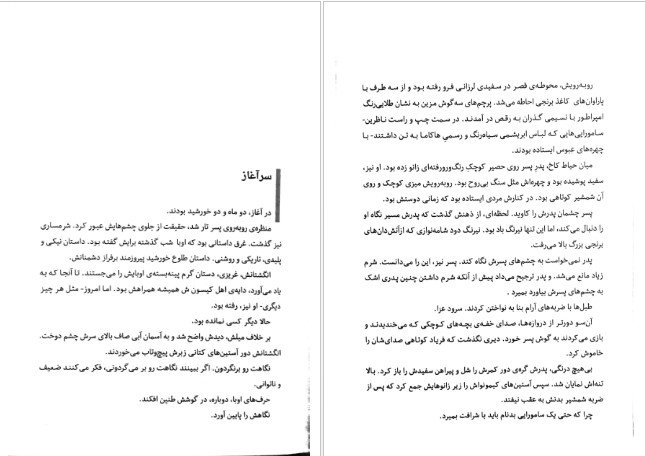 سرآغاز
در آغاز، دو ماه و دو خورشید بودند.
منظره‌ی روبه‌روی پسر تار شد، حقیقت از جلوی چشم‌هایش عبور کرد. شرمساری
نیز گذشت. غرق داستانی بود که اوبا شب گذشته برایش گفته بود. داستان نیکی و
پلیدی، تاریکی و روشنی. داستان طلوع خورشید پیروزمند برفراز دشمنانش.
انگشتانش، غریزی، دستان گرم پینه‌بسته‌ی اوبایش را می‌جستند. تا آنجا که به
یاد می‌آورد، دایه‌ی اهل کیسون ش همیشه همراهش بود. اما امروز- مثل هر چیز
دیگری- او نیز، رفته بود.
حالا دیگر کسی نمانده بود.
بر خلاف میلش، دیدش واضح شد و به آسمان آبی صاف بالای سرش چشم دوخت.
انگشتانش دور آستین‌های کتانی زبرش پیچ‌وتاب می‌خوردند.
نگاهت رو برنگردون. اگر ببینند نگاهت رو بر می‌گردونی، فکر می‌کنند ضعیف
و ناتوانی.
حرف‌های اوبا، دوباره، در گوشش طنین افکند.
نگاهش را پایین آورد.
روبه‌رویش، محوطه‌ی قصر در سفیدی لرزانی فرو رفته بود و از سه طرف با
پاراوان‌های کاغذ برنجی احاطه می‌شد. پرچم‌های سه‌گوش مزین به نشان طلایی‌رنگ
امپراطور با نسیمی گذران به رقص در آمدند. در سمت چپ و راست ناظرین-
سامورایی‌هایی که لباس ابریشمی سیاه‌رنگ و رسمیِ هاکاما به تن داشتند- با
چهره‌های عبوس ایستاده بودند.
میان حیاط کاخ، پدر پسر روی حصیر کوچکِ رنگ‌ورورفته‌ای زانو زده بود. او نیز،
سفید پوشیده بود و چهره‌اش مثل سنگ بی‌روح بود. روبه‌رویش میزی کوچک و روی
آن شمشیر کوتاهی بود. در کنارش مردی ایستاده بود که زمانی دوستش بود.
پسر چشمان پدرش را کاوید. لحظه‌ای، از ذهنش گذشت که پدرش مسیر نگاه او
را دنبال می‌کند، اما این تنها نیرنگ باد بود. نیرنگ دود شامه‌نوازی که ازآتش‌دان‌های
برنجی بزرگ بالا می‌رفت.
پدر نمی‌خواست به چشم‌های پسرش نگاه کند. پسر نیز، این را می‌دانست. شرم
زیاد مانع می‌شد. و پدر ترجیح می‌داد پیش از آنکه شرم داشتن چنین پدری اشک
به چشم‌های پسرش بیاورد بمیرد .
طبل‌ها با ضربه‌های آرام بنا به نواختن کردند. سرود عزا.
آن‌سو دورتر از دروازه‌ها، صدای خفه‌ی بچه‌های کوچکی که می‌خندیدند و
بازی می‌کردند به گوش پسر خورد، دیری نگذشت که فریاد کوتاهی صدای‌شان را
خاموش کرد.
بی‌هیچ درنگی، پدرش گره‌ی دور کمرش را شل و پیراهن سفیدش را باز کرد. بالا
تنه‌اش نمایان شد. سپس آستین‌های کیمونواش را زیر زانوهایش جمع کرد که پس از
ضربه شمشیر بدنش به عقب نیفتد.
چرا که حتی یک سامورایی بدنام باید با شرافت بمیرد.